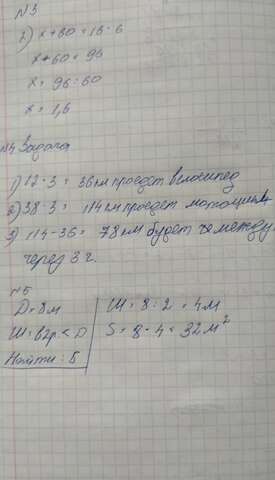 №3
2) x+60=16·6
x+60=96
x=96:60
x=1,6
№4 Задача
1) 12·3=36км проедет велосипед
2) 38·3=114км проедет мотоцикл
3) 114-36=78км будет между
через 3ч.
№5
D=8м
Ш=в2р.<D
Найти: S
Ш=8:2=4м
S=8·4=32м²